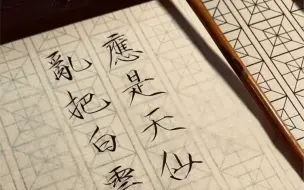 應是天仙
亂把白雲